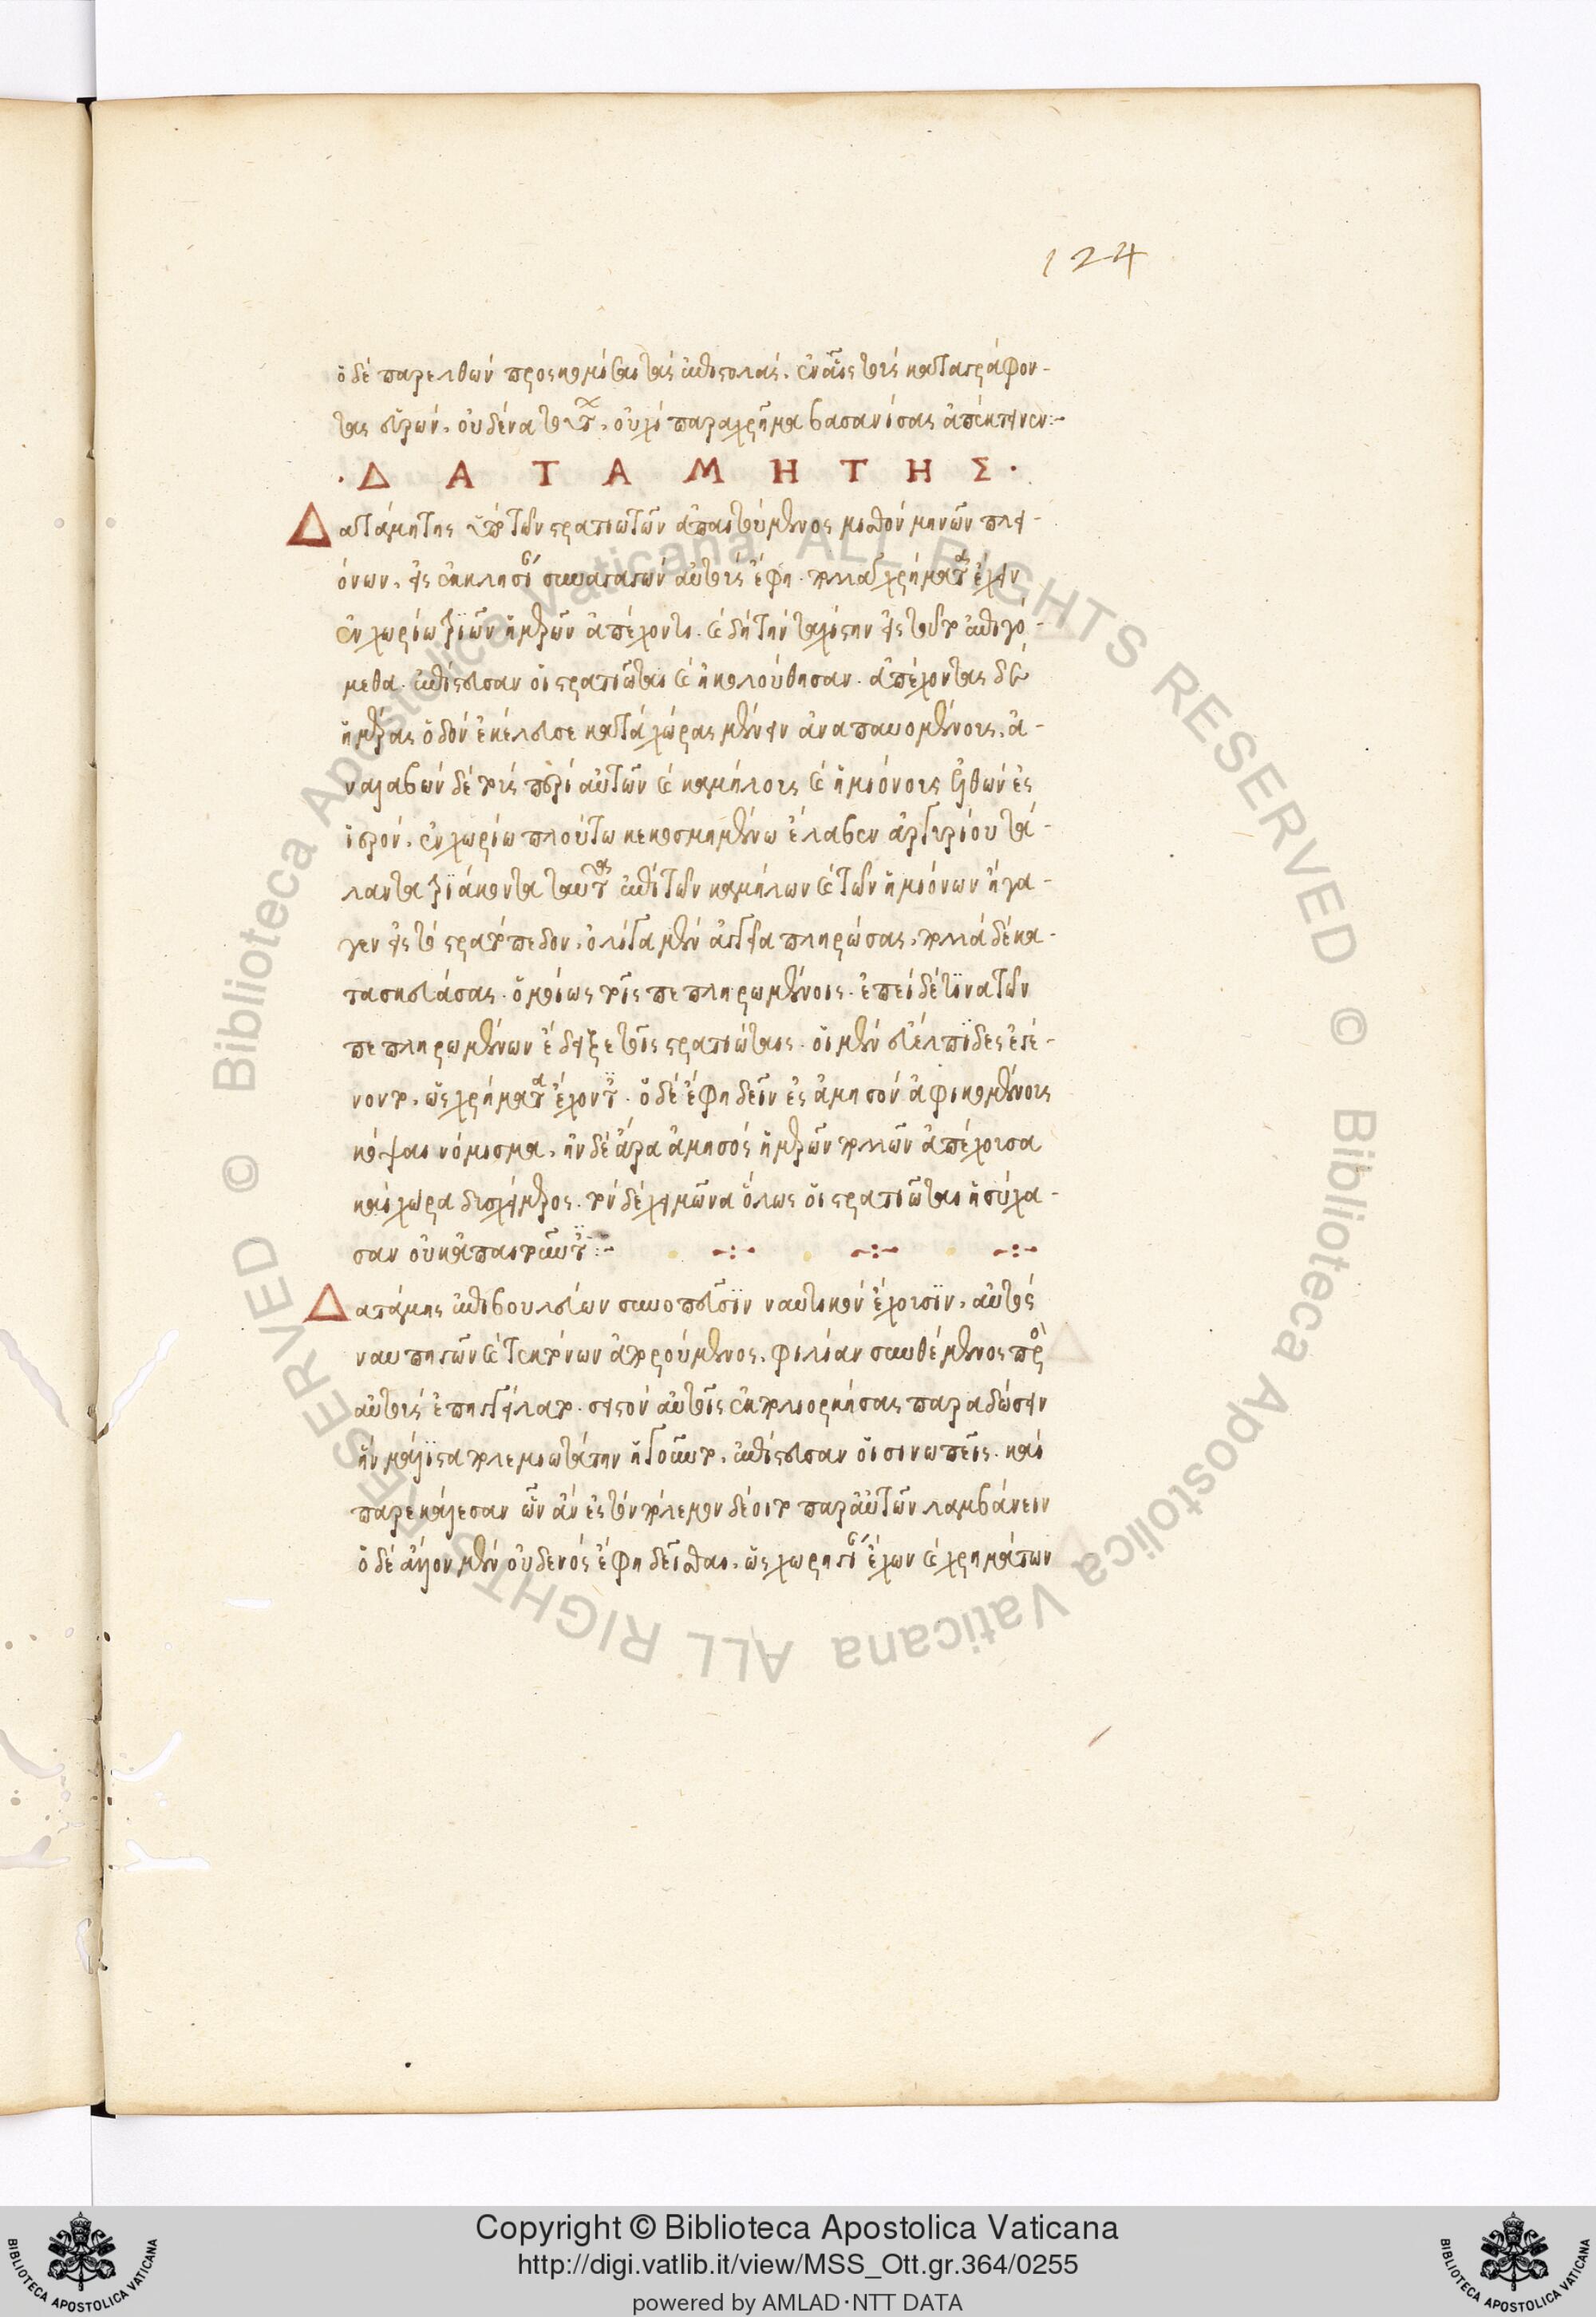 124
ὁ δὲ παρελθὼν προσκομίσαι τὰς ἐπιστολάς. ἐν αἷς τοὺς καταγράφον-
τας εὑρὼν, οὐδένα τούτων, οὐχὶ παραχρῆμα βασανίσας ἀπέκτεινεν:-
· Δ Α Τ Α Μ Η Τ Η Σ ·
Δατάμητης ὑπὸ τῶν στρατιωτῶν ἀπαιτούμενος μισθὸν μηνῶν πλει-
όνων, εἰς ἐκκλησίαν συναγαγὼν αὐτοὺς ἔφη. πολλὰ χρήματα ἔχειν
ἐν χωρίω τριῶν ἡμερῶν ἀπέχοντι. καὶ δὴ τὴν ταχίστην εἰς τοῦτο ἐπειγό-
μεθα. ἐπίστευσαν οἱ στρατιῶται καὶ ἠκολούθησαν. ἀπέχοντας δὲ
ἡμέρας ὁδὸν ἐκέλευσε κατὰ χώρας μένειν ἀναπαυομένους. ἀ-
ναλαβὼν δὲ τοὺς περὶ αὐτῶν καὶ καμήλους καὶ ἡμιόνους ἐλθὼν ἐς
ἱερὸν, ἐν χωρίω πλούτω κεκοσμημένω ἔλαβεν ἀργυρίου τά-
λαντα τριάκοντα ταῦτα ἐπὶ τῶν καμήλων καὶ τῶν ἡμιόνων ἤγα-
γεν εἰς τὸ στρατόπεδον. ὀλίγα μὲν ἀγγεῖα πληρώσας, πολλὰ δὲ κα-
τασκευάσας. ὁμοίως τοῖς πεπληρωμένοις. ἐπεὶ δὲ τινα τῶν
πεπληρωμένων ἔδειξε τοῖς στρατιώταις. οἱ μὲν εὐέλπιδες ἐγέ-
νοντο, ὡς χρήματα ἔχοντι. ὁ δὲ ἔφη δεῖν ἐς ἀμησὸν ἀφικομένους
κόψαι νόμισμα. ἦν δὲ ἄρα ἀμησὸς ἡμερῶν πολλῶν ἀπέχουσα
καὶ χώρα δυσχείμερος. τὸν δὲ χειμῶνα ὅλως οἱ στρατιῶται ἡσύχα-
σαν οὐκ ἀπαιτοῦντι:-
Δατάμης ἐπιβουλεύων σινοπεῦσιν ναυτικὸν ἔχουσιν, αὐτὸς
ναυπηγῶν καὶ τεκτόνων ἀπορούμενος. φιλίαν συνθέμενος πρὸς
αὐτοὺς ἐπηγγείλατο. σηστὸν αὐτοῖς ἐκπολιορκήσας παραδώσειν
ἣν μάλιστα πολεμιωτάτην ἡγοῦντο. ἐπίστευσαν οἱ σινωπεῖς. καὶ
παρεκάλεσαν ὧν ἂν ἐς τὸν πόλεμον δέοιτο παρ᾽ αὐτῶν λαμβάνειν
ὁ δὲ ἄλλου μὲν οὐδενὸς ἔφη δεῖσθαι. ὡς χορηγίαν ἔχων καὶ χρημάτων
© Biblioteca Apostolica Vaticana ALL RIGHTS RESERVED © Biblioteca Apostolica Vaticana ALL RIGHTS RESERVED
Copyright © Biblioteca Apostolica Vaticana
http://digi.vatlib.it/view/MSS_Ott.gr.364/0255
powered by AMLAD·NTT DATA
BIBLIOTECA APOSTOLICA VATICANA
BIBLIOTECA APOSTOLICA VATICANA